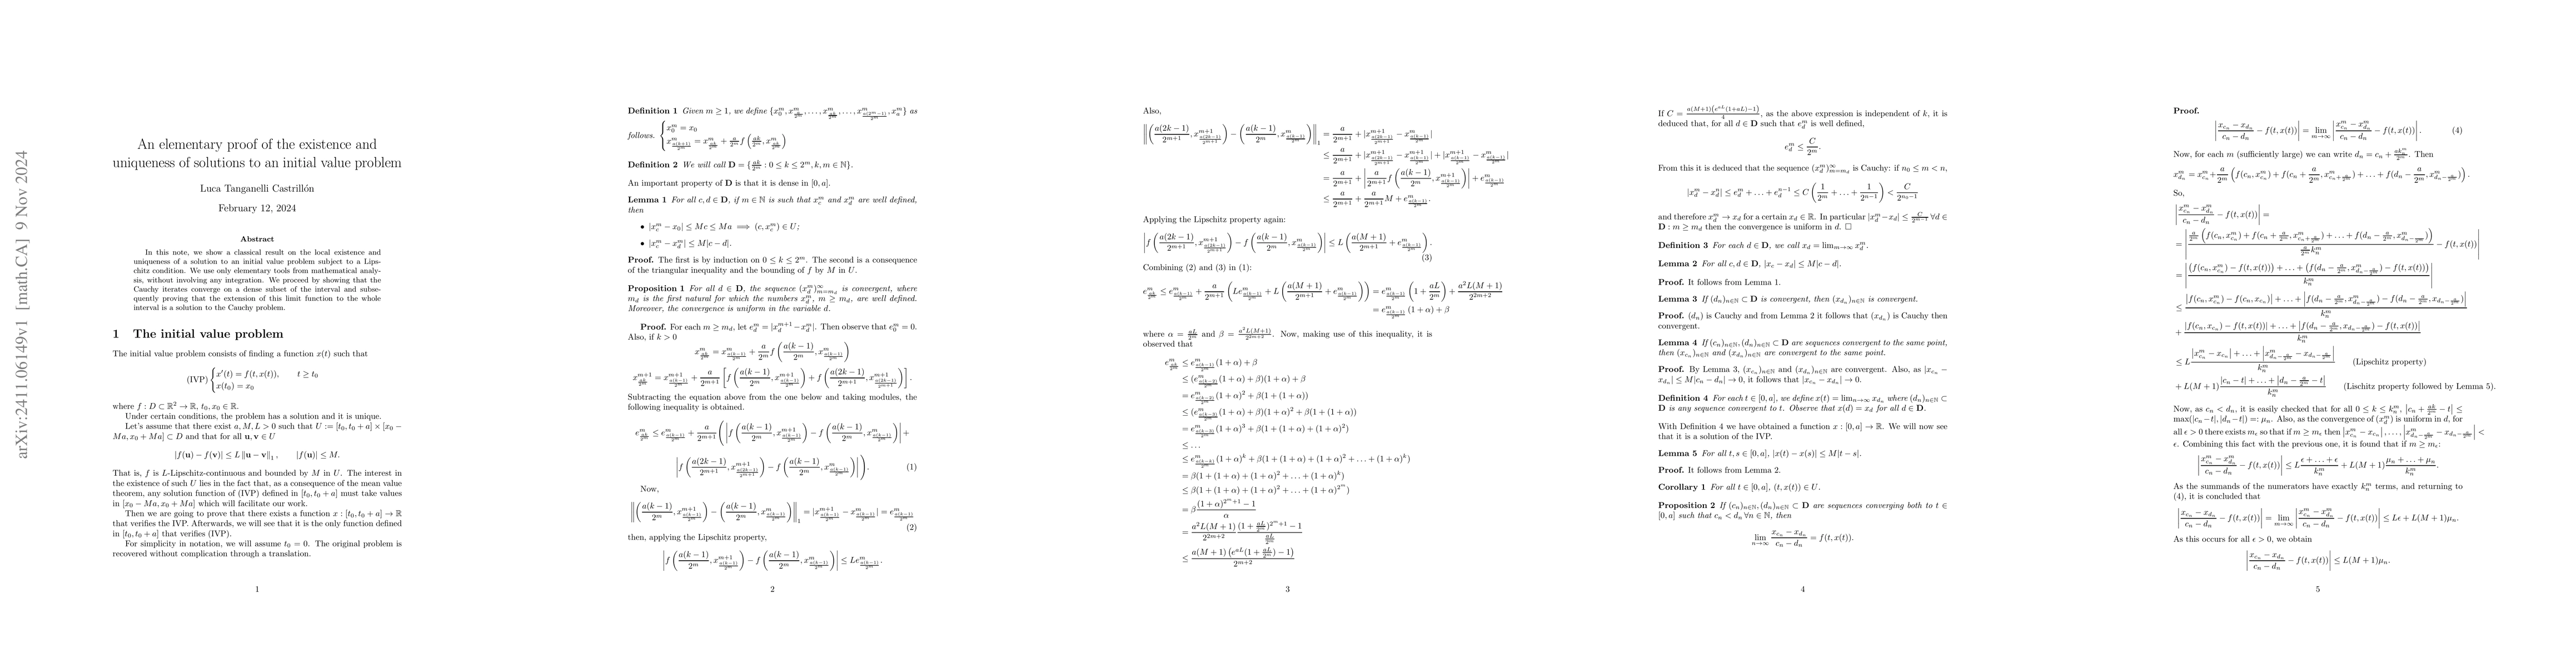 arXiv:2411.06149v1 [math.CA] 9 Nov 2024
An elementary proof of the existence and
uniqueness of solutions to an initial value problem
Luca Tanganelli Castrillón
February 12, 2024
Abstract
In this note, we show a classical result on the local existence and
uniqueness of a solution to an initial value problem subject to a Lips-
chitz condition. We use only elementary tools from mathematical analy-
sis, without involving any integration. We proceed by showing that the
Cauchy iterates converge on a dense subset of the interval and subse-
quently proving that the extension of this limit function to the whole
interval is a solution to the Cauchy problem.
1 The initial value problem
The initial value problem consists of finding a function x(t) such that
(IVP) { x′(t) = f(t, x(t)), t ≥ t₀
x(t₀) = x₀
where f : D ⊂ ℝ² → ℝ, t₀, x₀ ∈ ℝ.
Under certain conditions, the problem has a solution and it is unique.
Let's assume that there exist a, M, L > 0 such that U := [t₀, t₀ + a] × [x₀ −
Ma, x₀ + Ma] ⊂ D and that for all u, v ∈ U
|f(u) − f(v)| ≤ L ‖u − v‖₁ , |f(u)| ≤ M.
That is, f is L-Lipschitz-continuous and bounded by M in U. The interest in
the existence of such U lies in the fact that, as a consequence of the mean value
theorem, any solution function of (IVP) defined in [t₀, t₀ + a] must take values
in [x₀ − Ma, x₀ + Ma] which will facilitate our work.
Then we are going to prove that there exists a function x : [t₀, t₀ + a] → ℝ
that verifies the IVP. Afterwards, we will see that it is the only function defined
in [t₀, t₀ + a] that verifies (IVP).
For simplicity in notation, we will assume t₀ = 0. The original problem is
recovered without complication through a translation.
1
Definition 1 Given m ≥ 1, we define {x_0^m, x_{a/2^m}^m, . . . , x_{ak/2^m}^m, . . . , x_{a(2^m−1)/2^m}^m, x_a^m} as
follows. { x_0^m = x₀
x_{a(k+1)/2^m}^m = x_{ak/2^m}^m + a/2^m f(ak/2^m, x_{ak/2^m}^m)
Definition 2 We will call D = {ak/2^m : 0 ≤ k ≤ 2^m, k, m ∈ ℕ}.
An important property of D is that it is dense in [0, a].
Lemma 1 For all c, d ∈ D, if m ∈ ℕ is such that x_c^m and x_d^m are well defined,
then
• |x_c^m − x₀| ≤ Mc ≤ Ma ⟹ (c, x_c^m) ∈ U;
• |x_c^m − x_d^m| ≤ M|c − d|.
Proof. The first is by induction on 0 ≤ k ≤ 2^m. The second is a consequence
of the triangular inequality and the bounding of f by M in U.
Proposition 1 For all d ∈ D, the sequence (x_d^m)_{m=m_d}^∞ is convergent, where
m_d is the first natural for which the numbers x_d^m, m ≥ m_d, are well defined.
Moreover, the convergence is uniform in the variable d.
Proof. For each m ≥ m_d, let e_d^m = |x_d^{m+1} − x_d^m|. Then observe that e_0^m = 0.
Also, if k > 0
x_{ak/2^m}^m = x_{a(k−1)/2^m}^m + a/2^m f(a(k−1)/2^m, x_{a(k−1)/2^m}^m)
x_{ak/2^m}^{m+1} = x_{a(k−1)/2^m}^{m+1} + a/2^{m+1} [f(a(k−1)/2^m, x_{a(k−1)/2^m}^{m+1}) + f(a(2k−1)/2^{m+1}, x_{a(2k−1)/2^{m+1}}^{m+1})].
Subtracting the equation above from the one below and taking modules, the
following inequality is obtained.
e_{ak/2^m}^m ≤ e_{a(k−1)/2^m}^m + a/2^{m+1} (|f(a(k−1)/2^m, x_{a(k−1)/2^m}^{m+1}) − f(a(k−1)/2^m, x_{a(k−1)/2^m}^m)| +
|f(a(2k−1)/2^{m+1}, x_{a(2k−1)/2^{m+1}}^{m+1}) − f(a(k−1)/2^m, x_{a(k−1)/2^m}^m)|). (1)
Now,
‖(a(k−1)/2^m, x_{a(k−1)/2^m}^{m+1}) − (a(k−1)/2^m, x_{a(k−1)/2^m}^m)‖₁ = |x_{a(k−1)/2^m}^{m+1} − x_{a(k−1)/2^m}^m| = e_{a(k−1)/2^m}^m
(2)
then, applying the Lipschitz property,
|f(a(k−1)/2^m, x_{a(k−1)/2^m}^{m+1}) − f(a(k−1)/2^m, x_{a(k−1)/2^m}^m)| ≤ Le_{a(k−1)/2^m}^m.
2
Also,
‖(a(2k−1)/2^{m+1}, x_{a(2k−1)/2^{m+1}}^{m+1}) − (a(k−1)/2^m, x_{a(k−1)/2^m}^m)‖₁ = a/2^{m+1} + |x_{a(2k−1)/2^{m+1}}^{m+1} − x_{a(k−1)/2^m}^m|
≤ a/2^{m+1} + |x_{a(2k−1)/2^{m+1}}^{m+1} − x_{a(k−1)/2^m}^{m+1}| + |x_{a(k−1)/2^m}^{m+1} − x_{a(k−1)/2^m}^m|
= a/2^{m+1} + |a/2^{m+1} f(a(k−1)/2^m, x_{a(k−1)/2^m}^{m+1})| + e_{a(k−1)/2^m}^m
≤ a/2^{m+1} + a/2^{m+1} M + e_{a(k−1)/2^m}^m.
Applying the Lipschitz property again:
|f(a(2k−1)/2^{m+1}, x_{a(2k−1)/2^{m+1}}^{m+1}) − f(a(k−1)/2^m, x_{a(k−1)/2^m}^m)| ≤ L(a(M+1)/2^{m+1} + e_{a(k−1)/2^m}^m).
(3)
Combining (2) and (3) in (1):
e_{ak/2^m}^m ≤ e_{a(k−1)/2^m}^m + a/2^{m+1} (Le_{a(k−1)/2^m}^m + L(a(M+1)/2^{m+1} + e_{a(k−1)/2^m}^m)) = e_{a(k−1)/2^m}^m (1 + aL/2^m) + a²L(M+1)/2^{2m+2}
= e_{a(k−1)/2^m}^m (1 + α) + β
where α = aL/2^m and β = a²L(M+1)/2^{2m+2}. Now, making use of this inequality, it is
observed that
e_{ak/2^m}^m ≤ e_{a(k−1)/2^m}^m (1 + α) + β
≤ (e_{a(k−2)/2^m}^m (1 + α) + β)(1 + α) + β
= e_{a(k−2)/2^m}^m (1 + α)² + β(1 + (1 + α))
≤ (e_{a(k−3)/2^m}^m (1 + α) + β)(1 + α)² + β(1 + (1 + α))
= e_{a(k−3)/2^m}^m (1 + α)³ + β(1 + (1 + α) + (1 + α)²)
≤ . . .
≤ e_{a(k−k)/2^m}^m (1 + α)^k + β(1 + (1 + α) + (1 + α)² + . . . + (1 + α)^k)
= β(1 + (1 + α) + (1 + α)² + . . . + (1 + α)^k)
≤ β(1 + (1 + α) + (1 + α)² + . . . + (1 + α)^{2^m})
= β ((1 + α)^{2^m+1} − 1)/α
= a²L(M+1)/2^{2m+2} ((1 + aL/2^m)^{2^m+1} − 1)/(aL/2^m)
≤ a(M + 1)(e^{aL}(1 + aL/2^m) − 1)/2^{m+2}
3
If C = a(M+1)(e^{aL}(1+aL)−1)/4, as the above expression is independent of k, it is
deduced that, for all d ∈ D such that e_d^m is well defined,
e_d^m ≤ C/2^m.
From this it is deduced that the sequence (x_d^m)_{m=m_d}^∞ is Cauchy: if n₀ ≤ m < n,
|x_d^m − x_d^n| ≤ e_d^m + . . . + e_d^{n−1} ≤ C(1/2^m + . . . + 1/2^{n−1}) < C/2^{n₀−1}
and therefore x_d^m → x_d for a certain x_d ∈ ℝ. In particular |x_d^m − x_d| ≤ C/2^{m−1} ∀d ∈
D : m ≥ m_d then the convergence is uniform in d. □
Definition 3 For each d ∈ D, we call x_d = lim_{m→∞} x_d^m.
Lemma 2 For all c, d ∈ D, |x_c − x_d| ≤ M|c − d|.
Proof. It follows from Lemma 1.
Lemma 3 If (d_n)_{n∈ℕ} ⊂ D is convergent, then (x_{d_n})_{n∈ℕ} is convergent.
Proof. (d_n) is Cauchy and from Lemma 2 it follows that (x_{d_n}) is Cauchy then
convergent.
Lemma 4 If (c_n)_{n∈ℕ}, (d_n)_{n∈ℕ} ⊂ D are sequences convergent to the same point,
then (x_{c_n})_{n∈ℕ} and (x_{d_n})_{n∈ℕ} are convergent to the same point.
Proof. By Lemma 3, (x_{c_n})_{n∈ℕ} and (x_{d_n})_{n∈ℕ} are convergent. Also, as |x_{c_n} −
x_{d_n}| ≤ M|c_n − d_n| → 0, it follows that |x_{c_n} − x_{d_n}| → 0.
Definition 4 For each t ∈ [0, a], we define x(t) = lim_{n→∞} x_{d_n} where (d_n)_{n∈ℕ} ⊂
D is any sequence convergent to t. Observe that x(d) = x_d for all d ∈ D.
With Definition 4 we have obtained a function x : [0, a] → ℝ. We will now see
that it is a solution of the IVP.
Lemma 5 For all t, s ∈ [0, a], |x(t) − x(s)| ≤ M|t − s|.
Proof. It follows from Lemma 2.
Corollary 1 For all t ∈ [0, a], (t, x(t)) ∈ U.
Proposition 2 If (c_n)_{n∈ℕ}, (d_n)_{n∈ℕ} ⊂ D are sequences converging both to t ∈
[0, a] such that c_n < d_n ∀n ∈ ℕ, then
lim_{n→∞} (x_{c_n} − x_{d_n})/(c_n − d_n) = f(t, x(t)).
4
Proof.
|(x_{c_n} − x_{d_n})/(c_n − d_n) − f(t, x(t))| = lim_{m→∞} |(x_{c_n}^m − x_{d_n}^m)/(c_n − d_n) − f(t, x(t))|. (4)
Now, for each m (sufficiently large) we can write d_n = c_n + ak_n^m/2^m. Then
x_{d_n}^m = x_{c_n}^m + a/2^m (f(c_n, x_{c_n}^m) + f(c_n + a/2^m, x_{c_n+a/2^m}^m) + . . . + f(d_n − a/2^m, x_{d_n−a/2^m}^m)).
So,
|(x_{c_n}^m − x_{d_n}^m)/(c_n − d_n) − f(t, x(t))| =
= |a/2^m (f(c_n, x_{c_n}^m) + f(c_n + a/2^m, x_{c_n+a/2^m}^m) + . . . + f(d_n − a/2^m, x_{d_n−a/2^m}^m))/(a/2^m k_n^m) − f(t, x(t))|
= |((f(c_n, x_{c_n}^m) − f(t, x(t))) + . . . + (f(d_n − a/2^m, x_{d_n−a/2^m}^m) − f(t, x(t))))/k_n^m|
≤ (|f(c_n, x_{c_n}^m) − f(c_n, x_{c_n})| + . . . + |f(d_n − a/2^m, x_{d_n−a/2^m}^m) − f(d_n − a/2^m, x_{d_n−a/2^m})|)/k_n^m
+ (|f(c_n, x_{c_n}) − f(t, x(t))| + . . . + |f(d_n − a/2^m, x_{d_n−a/2^m}) − f(t, x(t))|)/k_n^m
≤ L (|x_{c_n}^m − x_{c_n}| + . . . + |x_{d_n−a/2^m}^m − x_{d_n−a/2^m}|)/k_n^m (Lipschitz property)
+ L(M + 1) (|c_n − t| + . . . + |d_n − a/2^m − t|)/k_n^m (Lischitz property followed by Lemma 5).
Now, as c_n < d_n, it is easily checked that for all 0 ≤ k ≤ k_n^m, |c_n + ak/2^m − t| ≤
max(|c_n − t|, |d_n − t|) =: μ_n. Also, as the convergence of (x_d^m) is uniform in d, for
all ϵ > 0 there exists m_ϵ so that if m ≥ m_ϵ then |x_{c_n}^m − x_{c_n}|, . . . , |x_{d_n−a/2^m}^m − x_{d_n−a/2^m}| <
ϵ. Combining this fact with the previous one, it is found that if m ≥ m_ϵ:
|(x_{c_n}^m − x_{d_n}^m)/(c_n − d_n) − f(t, x(t))| ≤ L (ϵ + . . . + ϵ)/k_n^m + L(M + 1) (μ_n + . . . + μ_n)/k_n^m.
As the summands of the numerators have exactly k_n^m terms, and returning to
(4), it is concluded that
|(x_{c_n} − x_{d_n})/(c_n − d_n) − f(t, x(t))| = lim_{m→∞} |(x_{c_n}^m − x_{d_n}^m)/(c_n − d_n) − f(t, x(t))| ≤ Lϵ + L(M + 1)μ_n.
As this occurs for all ϵ > 0, we obtain
|(x_{c_n} − x_{d_n})/(c_n − d_n) − f(t, x(t))| ≤ L(M + 1)μ_n.
5